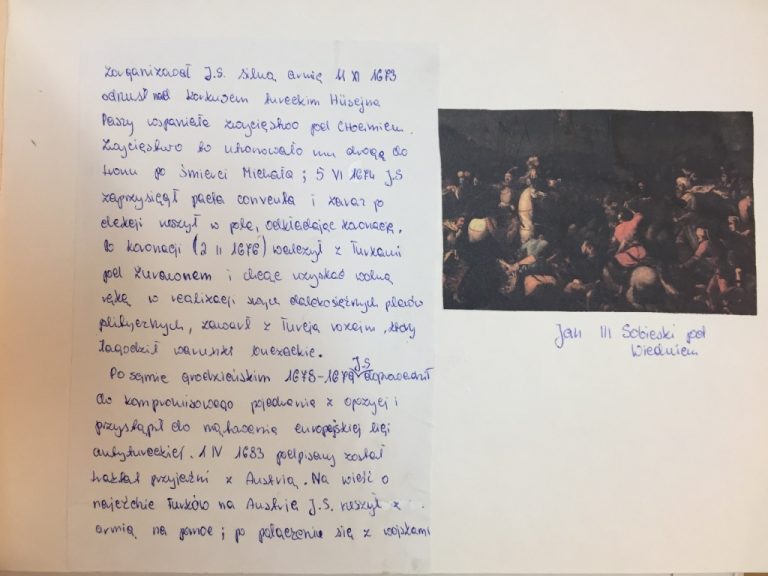 zorganizował J.S. silną armię 11 XI 1673
odniósł nad korkusem tureckim Hüsejna
Paszy wspaniałe zwycięstwo pod Chocimiem.
Zwycięstwo to utorowało mu drogę do
tronu po śmierci Michała; 5 VI 1674 J.S
zaprzysiągł pacta conventa i zaraz po
elekcji ruszył w pole, odkładając koronację.
Po koronacji (2 II 1676) walczył z Turkami
pod Żurawnem i chcąc uzyskać wolną
rękę w realizacji swych dalekosiężnych planów
politycznych, zawarł z Turcją rozejm, który
łagodził warunki buczackie.
Po sejmie grodzieńskim 1678-1679 J.S doprowadził
do kompromisowego pojednania z opozycją i
przystąpił do montowania europejskiej ligi
antytureckiej. 1 IV 1683 podpisany został
traktat przyjaźni z Austrią. Na wieść o
najeździe Turków na Austrię J.S. ruszył z
armią na pomoc; po połączeniu się z wojskami
Jan III Sobieski pod
Wiedniem